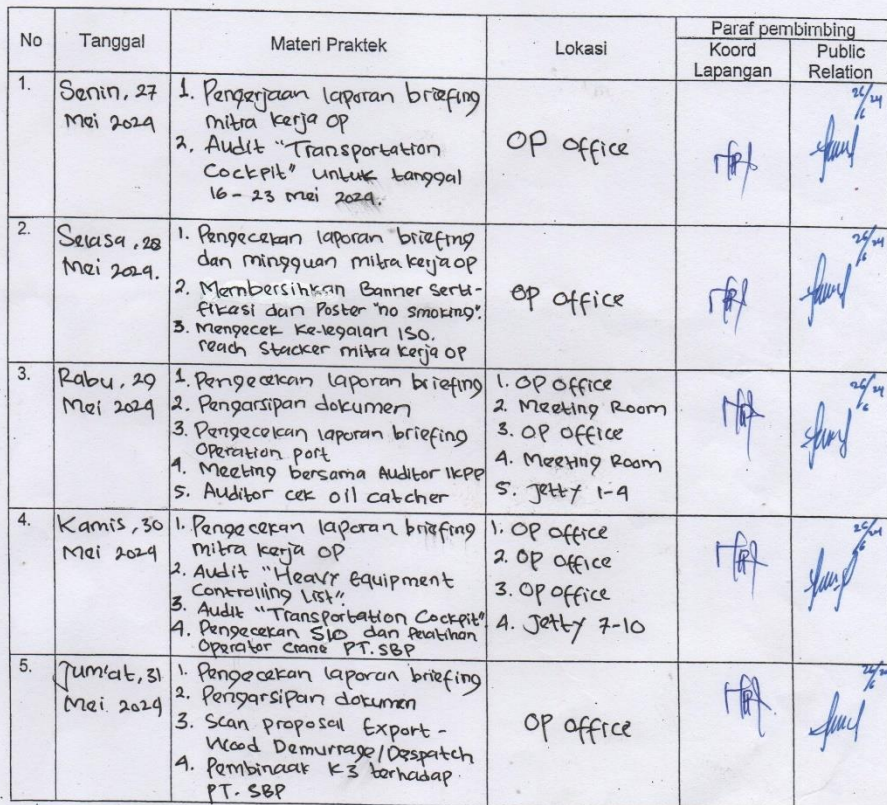 No Tanggal Materi Praktek Lokasi Paraf pembimbing
Koord Lapangan Public Relation
1. Senin, 27 Mei 2024
1. Pengerjaan laporan briefing
mitra kerja OP
2. Audit "Transportation
Cockpit" untuk tanggal
16 - 23 Mei 2024.
OP Office
26/6 24
2. Selasa, 28 Mei 2024.
1. Pengecekan laporan briefing
dan mingguan mitra kerja OP
2. Membersihkan Banner Serti-
fikasi dan Poster "no smoking".
3. Mengecek Ke-legalan ISO.
reach Stacker mitra kerja OP
OP Office
26/6 24
3. Rabu, 29 Mei 2024
1. Pengecekan laporan briefing
2. Pengarsipan dokumen
3. Pengecekan laporan briefing
Operation port
4. Meeting bersama Auditor IKPP
5. Auditor cek oil catcher
1. OP Office
2. Meeting Room
3. OP Office
4. Meeting Room
5. Jetty 1-4
26/6 24
4. Kamis, 30 Mei 2024
1. Pengecekan laporan briefing
mitra kerja OP
2. Audit "Heavy Equipment
Controlling List".
3. Audit "Transportation Cockpit"
4. Pengecekan SIO dan Pelatihan
Operator crane PT. SBP
1. OP Office
2. OP Office
3. OP Office
4. Jetty 7-10
26/6 24
5. Jum'at, 31 Mei 2024
1. Pengecekan laporan briefing
2. Pengarsipan dokumen
3. Scan proposal Export -
Wood Demurrage/Despatch
4. Pembinaak K3 terhadap
PT. SBP
OP Office
26/6 24